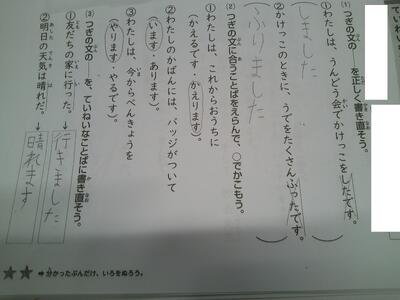 (1) つぎの文の——を正しく書き直そう。
①わたしは、うんどう会でかけっこをしたです。
(しました)
②かけっこのときに、うでをたくさんふったです。
(ふりました)
(2) つぎの文に合うことばをえらんで、○でかこもう。
①わたしは、これからおうちに
(かえるです・かえります)。
②わたしのかばんには、バッジがついて
(います・あります)。
③わたしは、今からべんきょうを
(やります・やるです)。
(3) つぎの文の——を、ていねいなことばに書き直そう。
①友だちの家に行った。→行きました
②明日の天気は晴れだ。→晴れます
★★ ➡分かったぶんだけ、いろをぬろう。